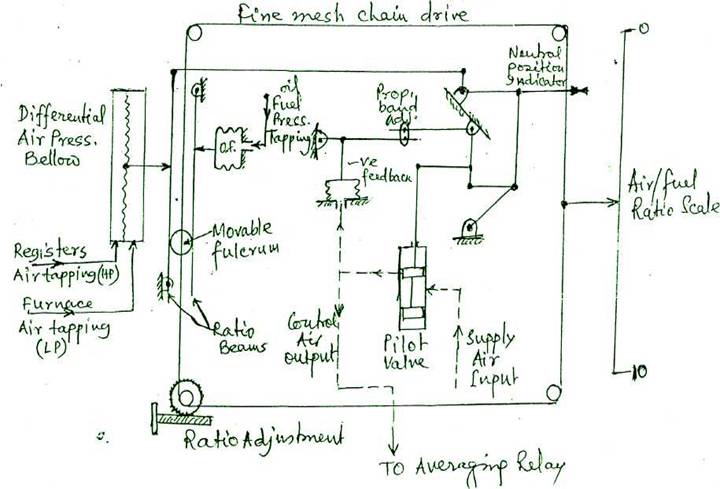 Fine mesh chain drive
0
Neutral
position
Indicator
Differential
Air Press.
Bellow
oil
Fuel
Press.
Tapping
Prop.
band
Adj.
O.F.
-ve
feedback
Air/fuel
Ratio Scale
Movable
fulcrum
Registers
Air tapping (HP)
Furnace
Air tapping
(LP)
Ratio
Beams
Control
Air
output
Pilot
Valve
Supply
Air
Input
10
Ratio Adjustment
TO Averaging Relay